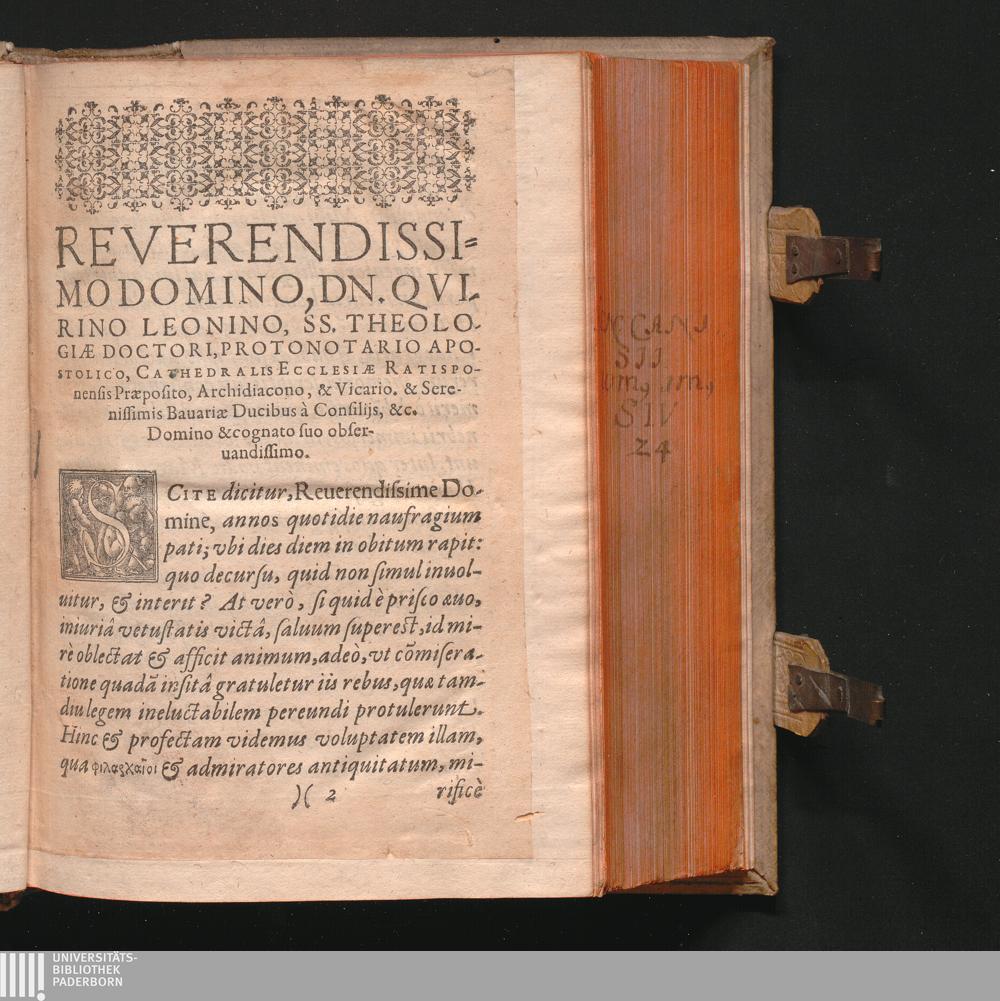 REVERENDISSI=
MO DOMINO, DN. QVI-
RINO LEONINO, SS. THEOLO-
GIÆ DOCTORI, PROTONOTARIO APO-
STOLICO, CATHEDRALIS ECCLESIÆ RATISPO-
nenſis Præpoſito, Archidiacono, & Vicario. & Sere-
niſſimis Bauariæ Ducibus à Conſilijs, &c.
Domino & cognato ſuo obſer-
uandiſſimo.
SCITE dicitur, Reuerendiſsime Do-
mine, annos quotidie naufragium
pati; vbi dies diem in obitum rapit:
quo decurſu, quid non ſimul inuol-
uitur, & interit? At verò, ſi quid è priſco æuo,
iniuriâ vetuſtatis victâ, ſaluum ſupereſt, id mi-
rè oblectat & afficit animum, adeò, vt cõmiſera-
tione quadã inſitâ gratuletur iis rebus, quæ tam-
diu legem ineluctabilem pereundi protulerunt.
Hinc & profectam videmus voluptatem illam,
qua φιλαρχαῖοι & admiratores antiquitatum, mi-
)( 2 rificè
CANI
SII
SIV
24
UNIVERSITÄTS-
BIBLIOTHEK
PADERBORN